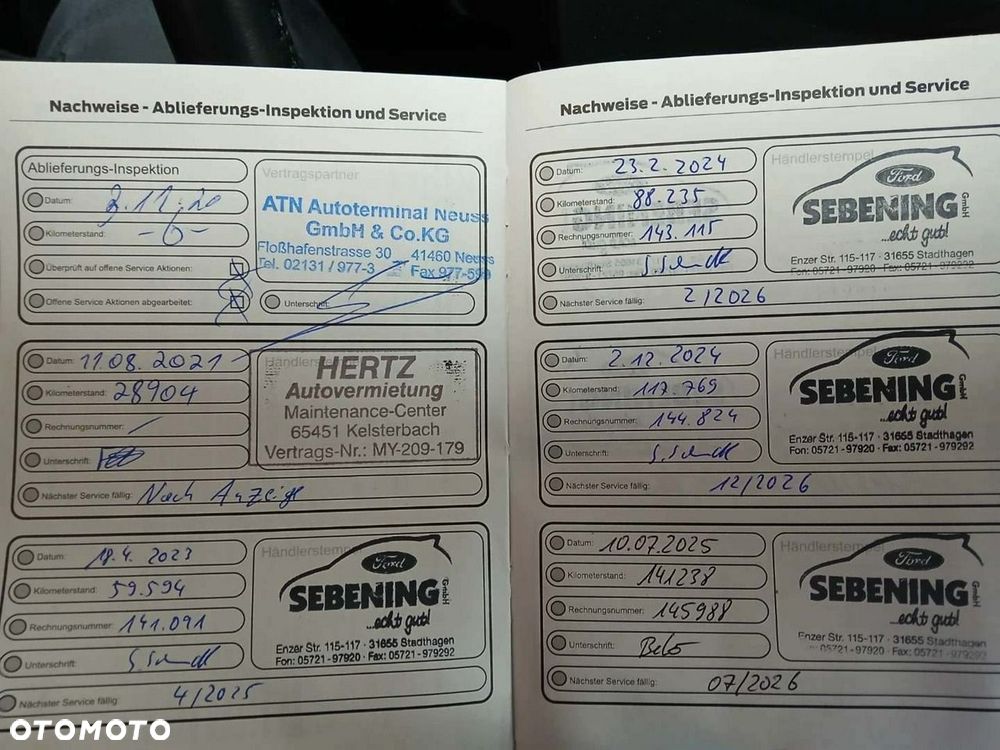 Nachweise - Ablieferungs-Inspektion und Service
Ablieferungs-Inspektion
Datum: 3.11.20
Kilometerstand: -0-
Überprüft auf offene Service Aktionen:
Offene Service Aktionen abgearbeitet:
Vertragspartner
ATN Autoterminal Neuss
GmbH & Co.KG
Floßhafenstrasse 30 41460 Neuss
Tel. 02131 / 977-3 Fax 977-599
Unterschrift:
Datum: 11.08.2021
Kilometerstand: 28904
Rechnungsnummer: /
Unterschrift:
HERTZ
Autovermietung
Maintenance-Center
65451 Kelsterbach
Vertrags-Nr.: MY-209-179
Nächster Service fällig: Nach Anzeige
Datum: 18.4. 2023
Kilometerstand: 59.594
Rechnungsnummer: 141.091
Unterschrift:
Händlerstempel
Ford
SEBENING GmbH
...echt gut!
Enzer Str. 115-117 · 31655 Stadthagen
Fon: 05721-97920 · Fax: 05721-979292
Nächster Service fällig: 4/2025
Nachweise - Ablieferungs-Inspektion und Service
Datum: 23.2. 2024
Kilometerstand: 88.235
Rechnungsnummer: 143.115
Unterschrift:
Händlerstempel
Ford
SEBENING GmbH
...echt gut!
Enzer Str. 115-117 · 31655 Stadthagen
Fon: 05721-97920 · Fax: 05721-979292
Nächster Service fällig: 2/2026
Datum: 2.12. 2024
Kilometerstand: 117.769
Rechnungsnummer: 144.824
Unterschrift:
Händlerstempel
Ford
SEBENING GmbH
...echt gut!
Enzer Str. 115-117 · 31655 Stadthagen
Fon: 05721-97920 · Fax: 05721-979292
Nächster Service fällig: 12/2026
Datum: 10.07.2025
Kilometerstand: 141238
Rechnungsnummer: 145988
Unterschrift:
Händlerstempel
Ford
SEBENING GmbH
...echt gut!
Enzer Str. 115-117 · 31655 Stadthagen
05721-97920 · Fax: 05721-979292
Nächster Service fällig: 07/2026
OTOMOTO